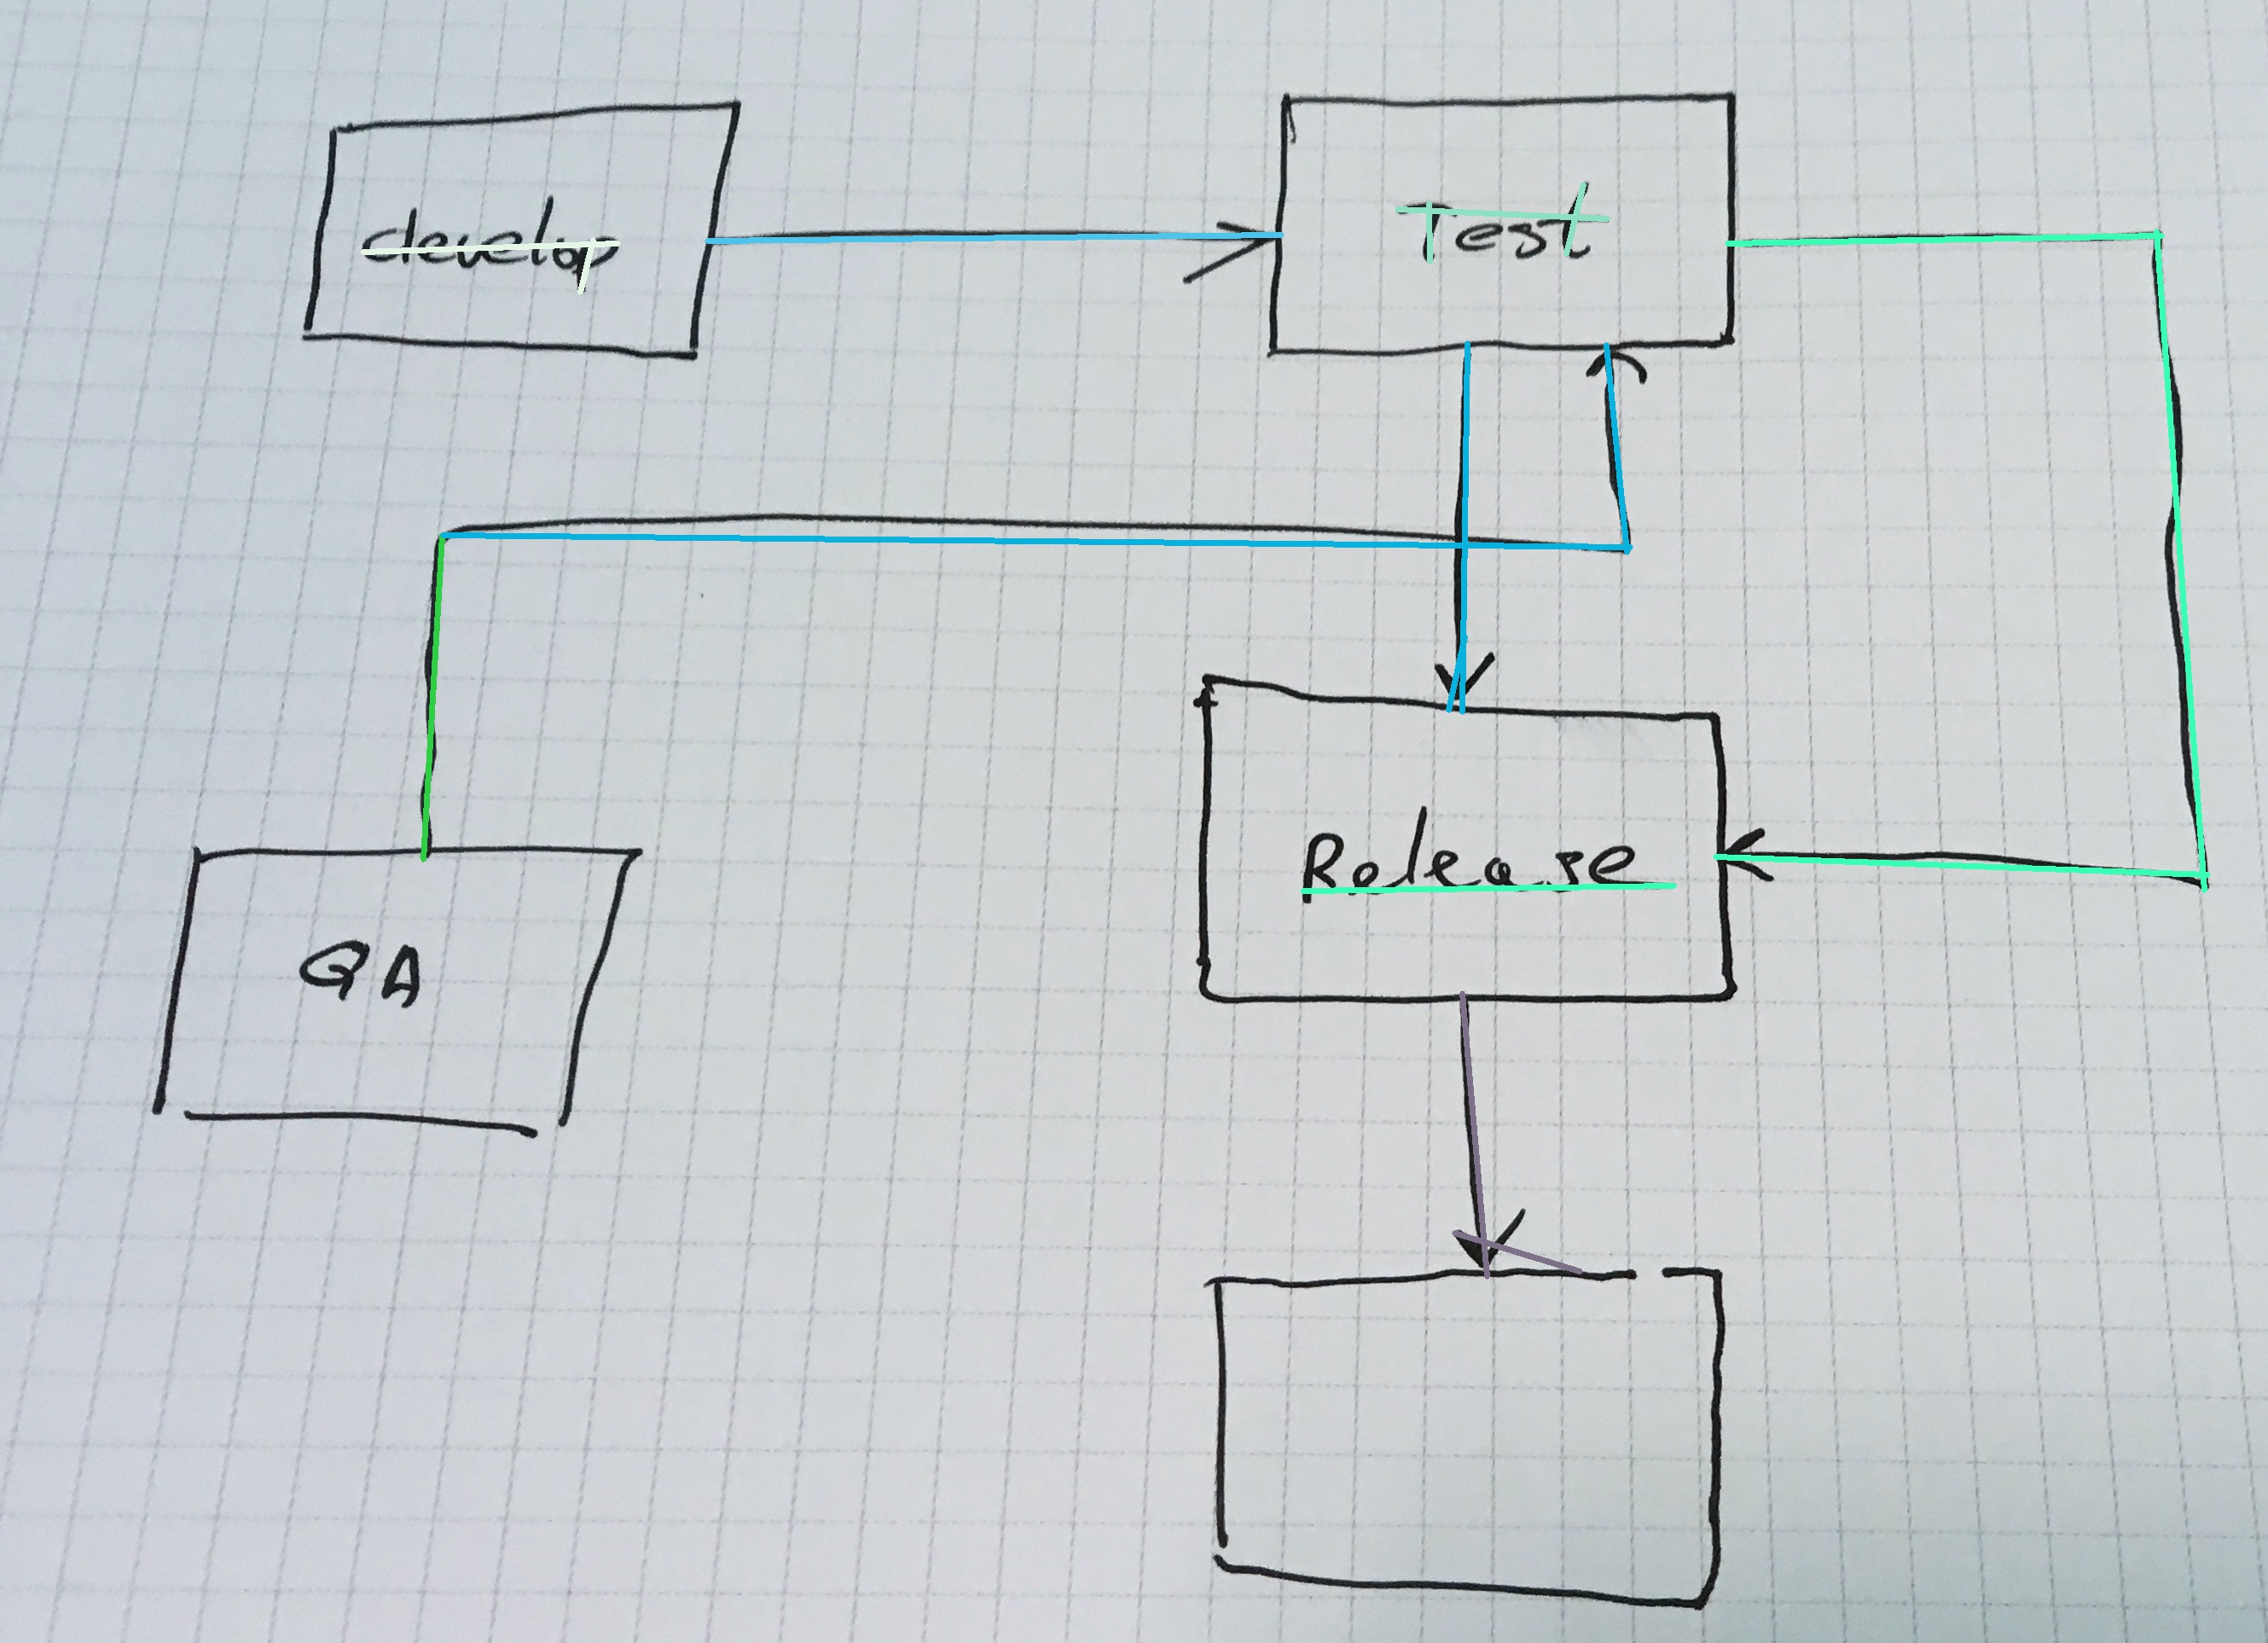 develop
Test
Release
QA